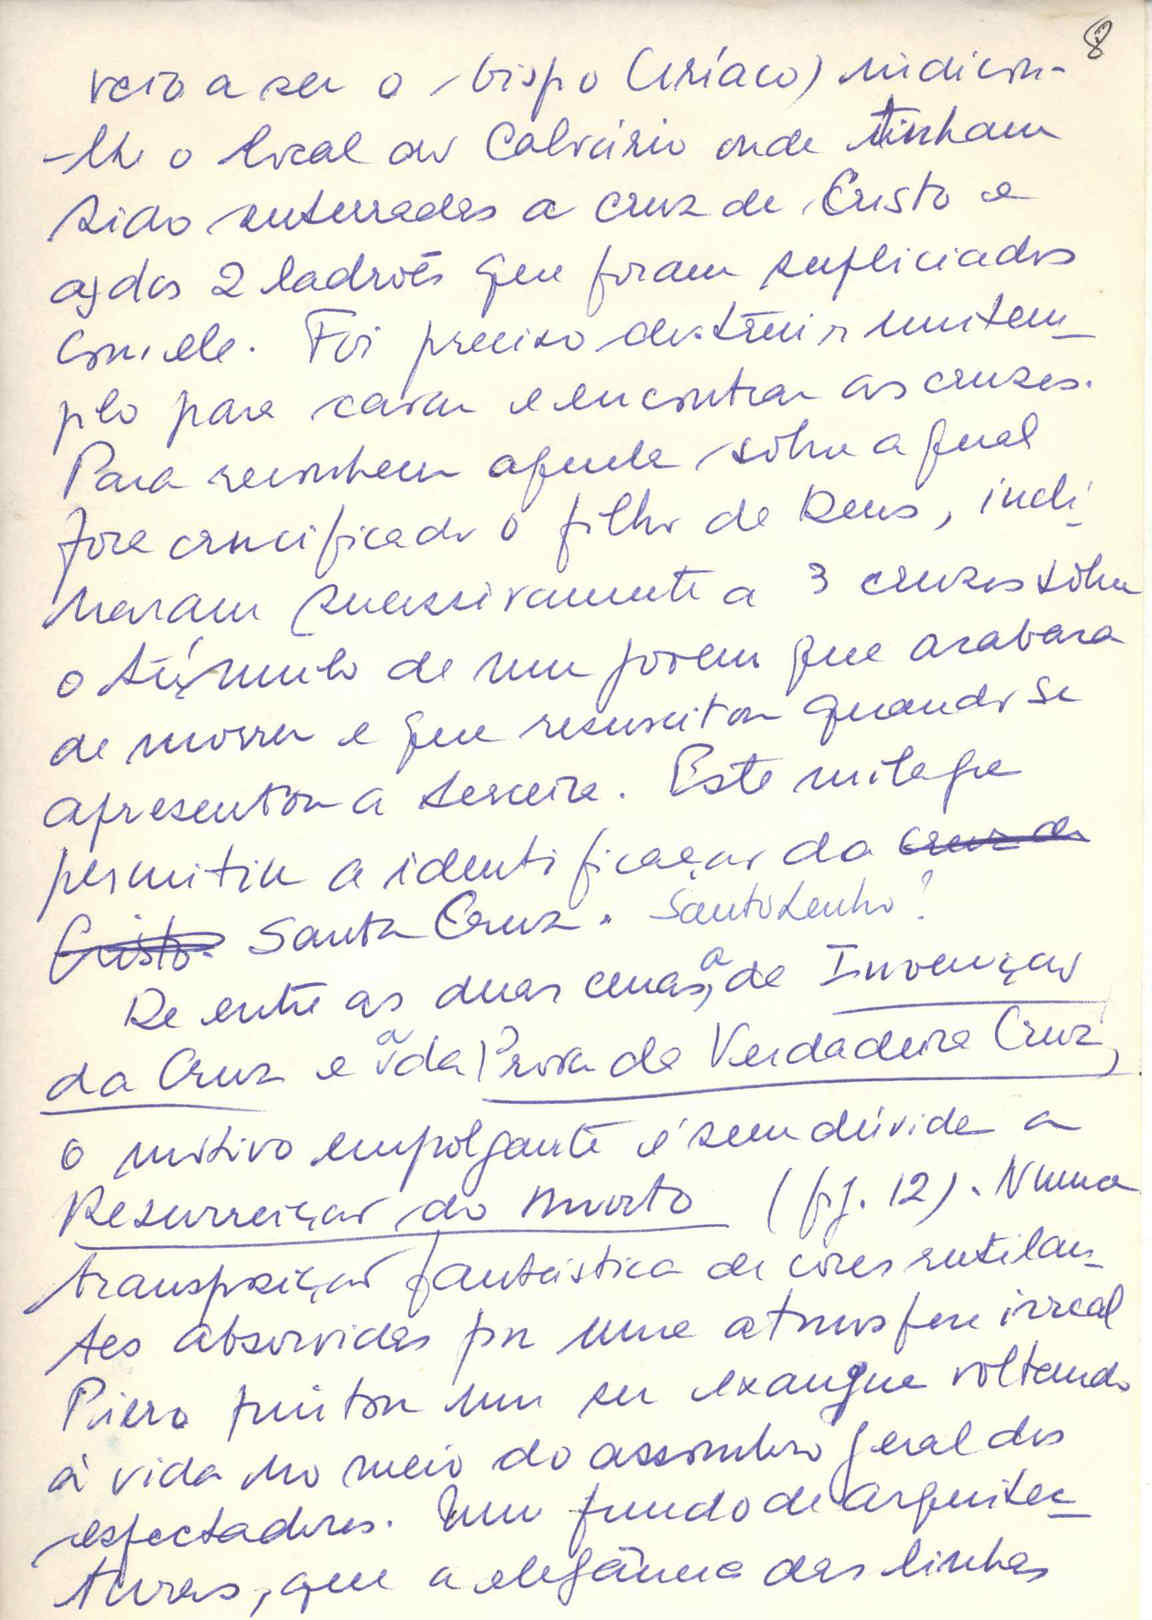 8
veio a ser o bispo Ciríaco) indicou-
-lhe o local do Calvário onde tinham
sido enterradas a cruz de Cristo e
as dos 2 ladrões que foram supliciados
com ele. Foi preciso destruir um tem-
plo para cavar e encontrar as cruzes.
Para reconhecer aquela sôbre a qual
fora crucificado o filho de Deus, incli-
naram sucessivamente a 3 cruzes sôbre
o túmulo de um jovem que acabara
de morrer e que resuscitou quando se
apresentou a terceira. Este milagre
permitiu a identificação da cruz de
Cristo. Santa Cruz. Santo Lenho?
De entre as duas cenas, a de Invenção
da Cruz e a da Prova da Verdadeira Cruz,
o motivo empolgante é sem dúvida a
Resurreição do Morto (fig. 12). Numa
transposição fantástica de côres rutilan-
tes absorvidas por uma atmosfera irreal
Piero pintou um ser exangue voltando
à vida no meio do assombro geral dos
espectadores. Num fundo de arquitec-
turas, que a elegância das linhas